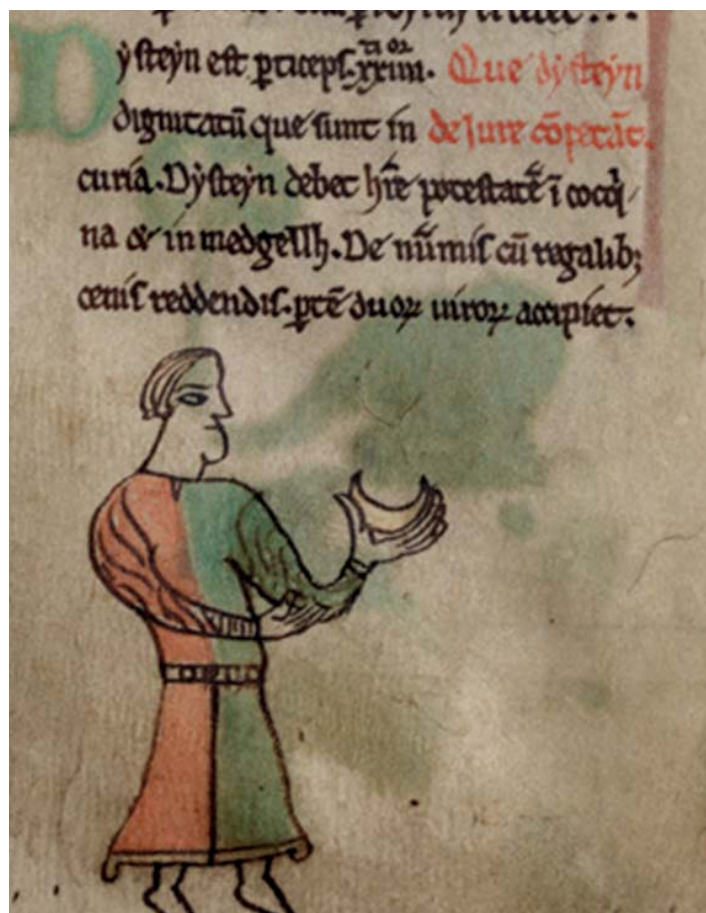 Dẏsteẏn est ꝑticeps .xxiiii. Que dẏsteẏn
dignitatū que sunt in de Jure cōpetāt.
curia. Dẏsteẏn debet hr̄e potestatē ī coqi
na & in medgellh. De nūmis cū regalib;
cenis reddendis. ꝑtē duoꝝ uiroꝝ accipiet.